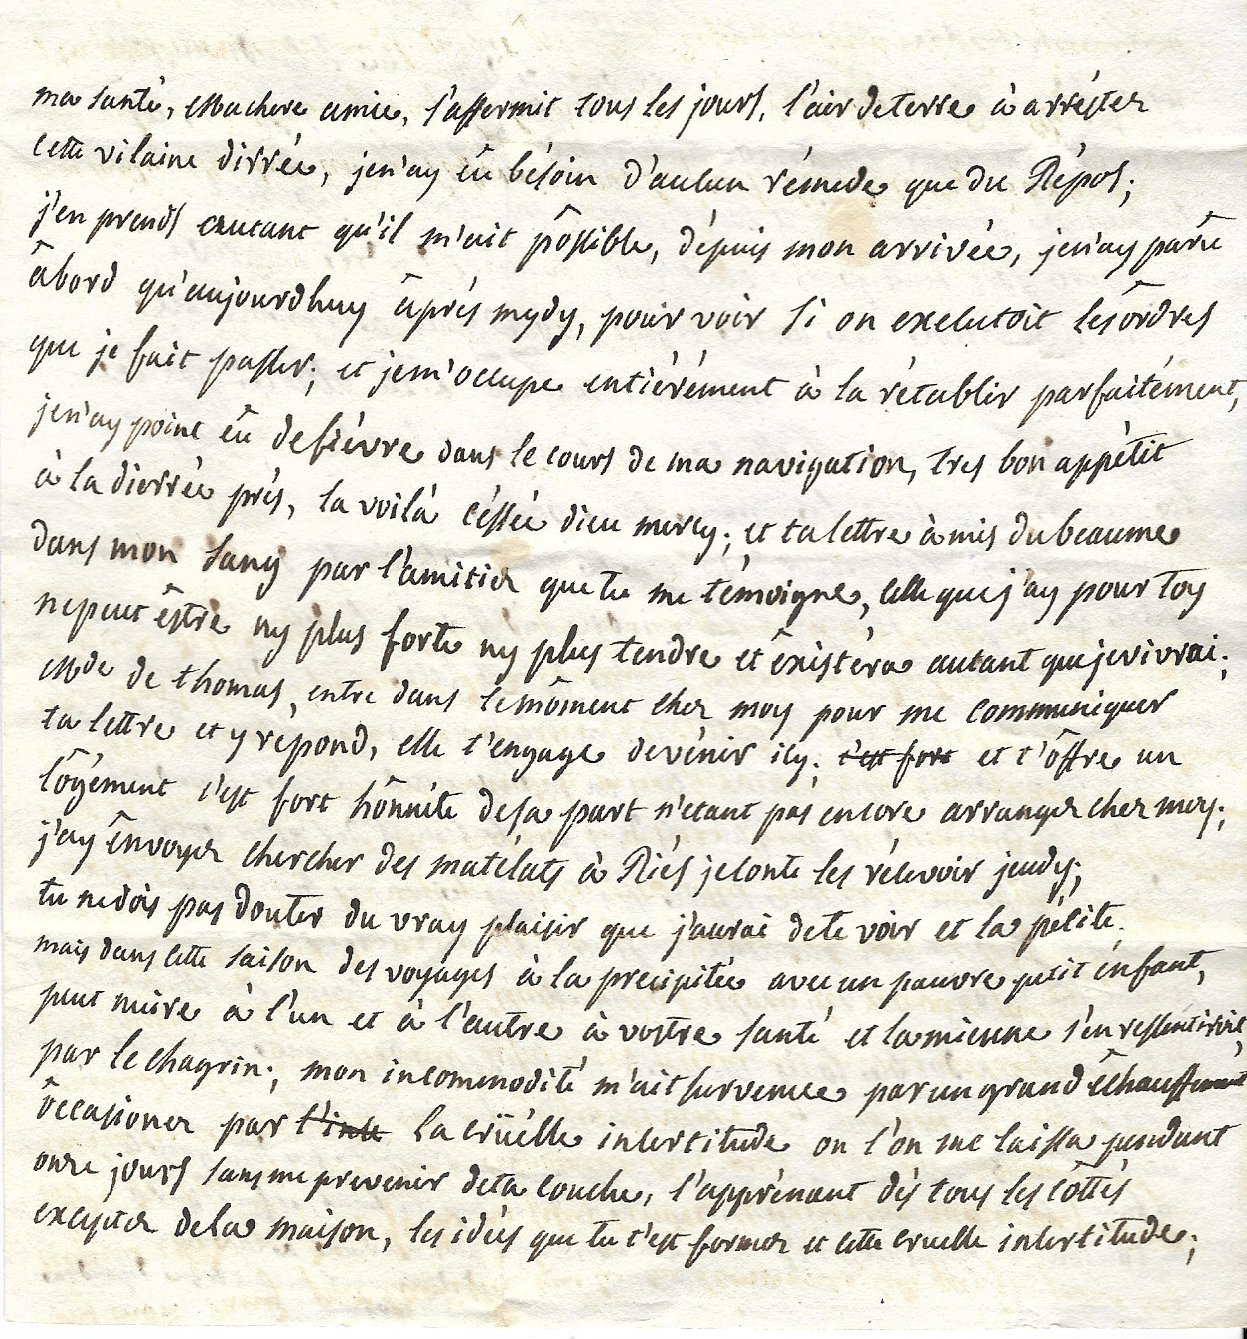 ma santé, Ma chere amie, s'affermit tous les jours, l'air de terre à arréster
cette vilaine dirrée, je n'ay êu bésoin d'aucun rémede que du Répos;
j'en prends autant qu'il m'ait pôssible, dépuis mon arrivée, je n'ay parû
âbord qu'aujourdhuy âprés mydy, pour voir si on executoit les ôrdres
que je fait passer; et je m'occupe entiérément à la rétablir parfaitément,
je n'ay point êu de fiévre dans le cours de ma navigation, tres bon appétit
à la dierrée prés, la voilà céssée dieu mercy; et ta lettre à mis du beaume
dans mon sang par l'amitier que tu me témoigne, celle que j'ay pour toy
ne peut êstre ny plus forte ny plus tendre et êxistéra autant que je vivrai;
Mde de thomas, entre dans le môment cher moy pour me communiquer
ta lettre et y répond, elle t'engage de vénir icy; c'est fort et t'ôffre un
lôgément c'est fort hônnéte de sa part n'etant pas encore arranger cher moy;
j'ay ênvoyer chercher des matélats à Riés je conte les récevoir jeudy;
tu ne dois pas douter du vray plaisir que j'aurai de te voir et la pétite.
mais dans cette saison des voyages à la précipitée avec un pauvre petit énfant,
peut nuire à l'un et à l'autre à vostre santé et la mienne s'en ressentiroit,
par le chagrin; mon incommodité m'ait survenue par un grand êchauffement
ôccasioner par l'ince la crüélle incertitude on l'on me laissa pendant
onze jours sans me prevenir de ta couche, l'apprénant dés tous les côttés
excepter de la maison, les idées que tu t'est former et cette cruelle incertitude;